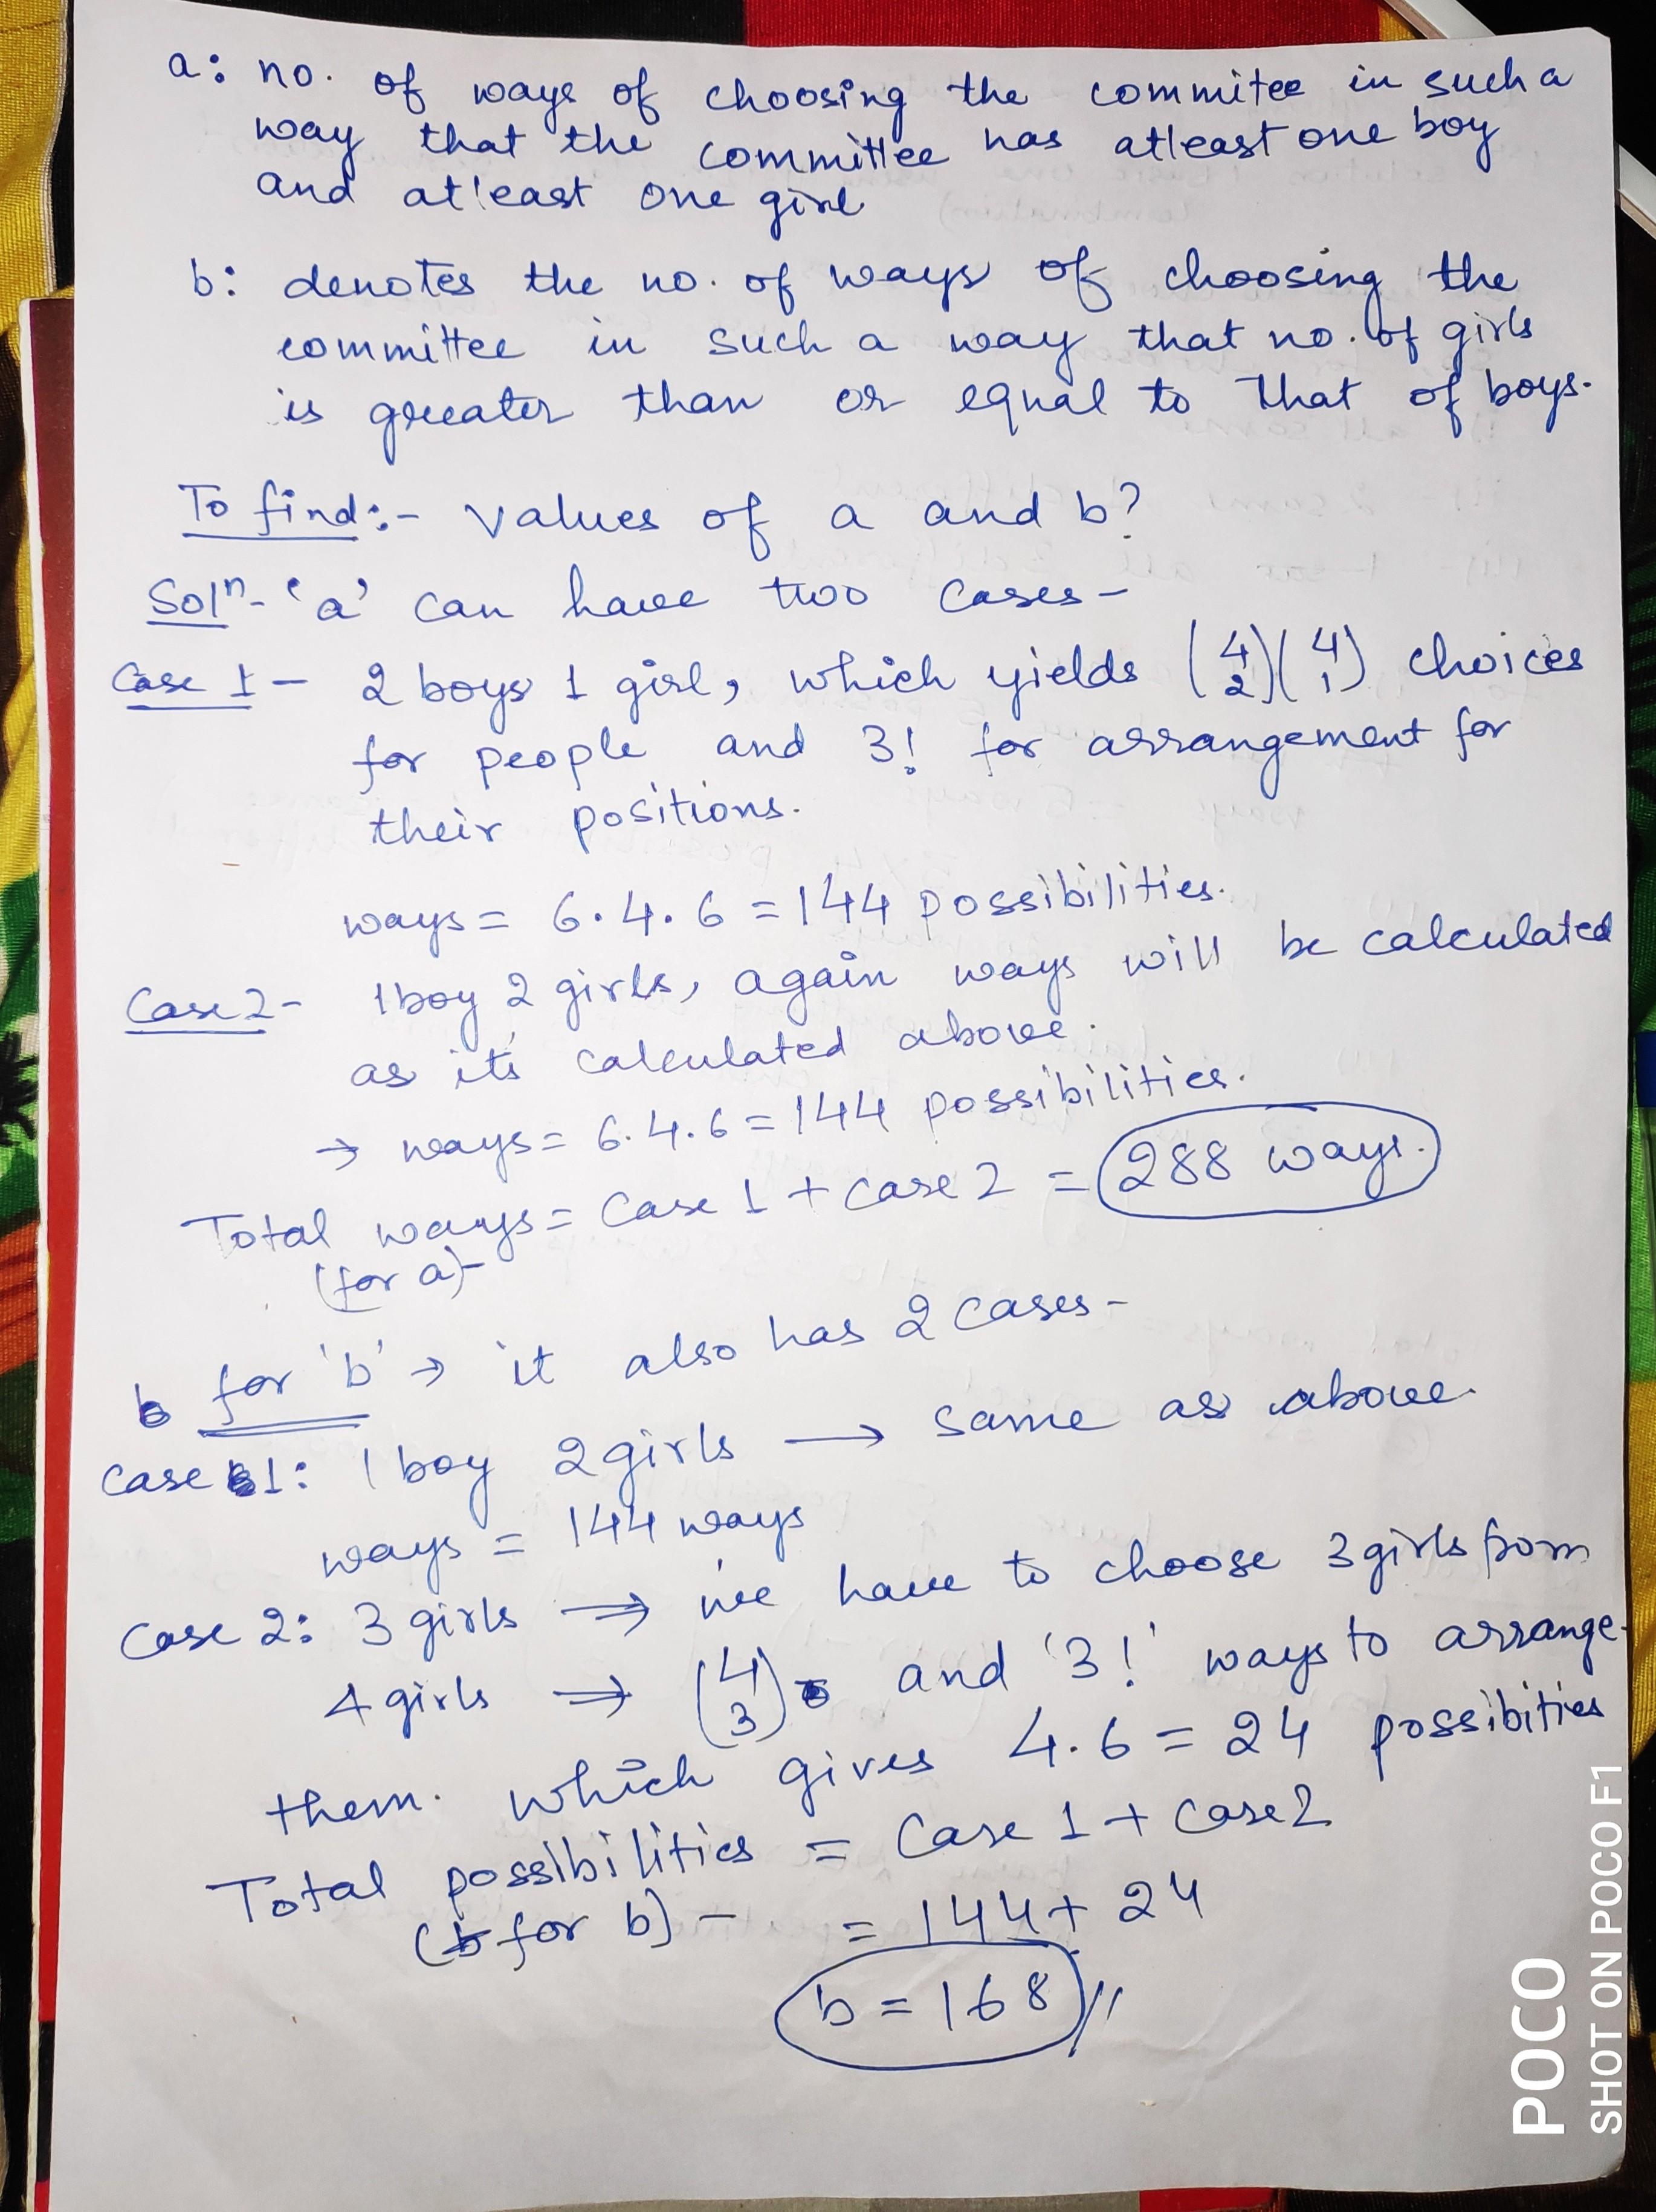 a: no. of ways of choosing the commitee in such a
way that the committee has atleast one boy
and atleast one girl
b: denotes the no. of ways of choosing the
committee in such a way that no. of girls
is greater than or equal to that of boys.
To find:- values of a and b?
Solⁿ- 'a' can have two cases-
Case 1- 2 boys 1 girl, which yields (4 2)(4 1) choices
for people and 3! for arrangement for
their positions.
ways = 6.4.6 = 144 possibilities.
Case 2- 1 boy 2 girls, again ways will be calculated
as its calculated above.
→ ways = 6.4.6 = 144 possibilities.
Total ways = Case 1 + case 2 = 288 ways.
(for a)-
for 'b' → it also has 2 cases-
Case 1: 1 boy 2 girls → same as above.
ways = 144 ways
Case 2: 3 girls ⇒ we have to choose 3 girls from
4 girls ⇒ (4 3) and '3!' ways to arrange
them. which gives 4.6 = 24 possibities
Total possibilities = Case 1 + Case 2
(for b) - = 144 + 24
b = 168 //
POCO
SHOT ON POCO F1